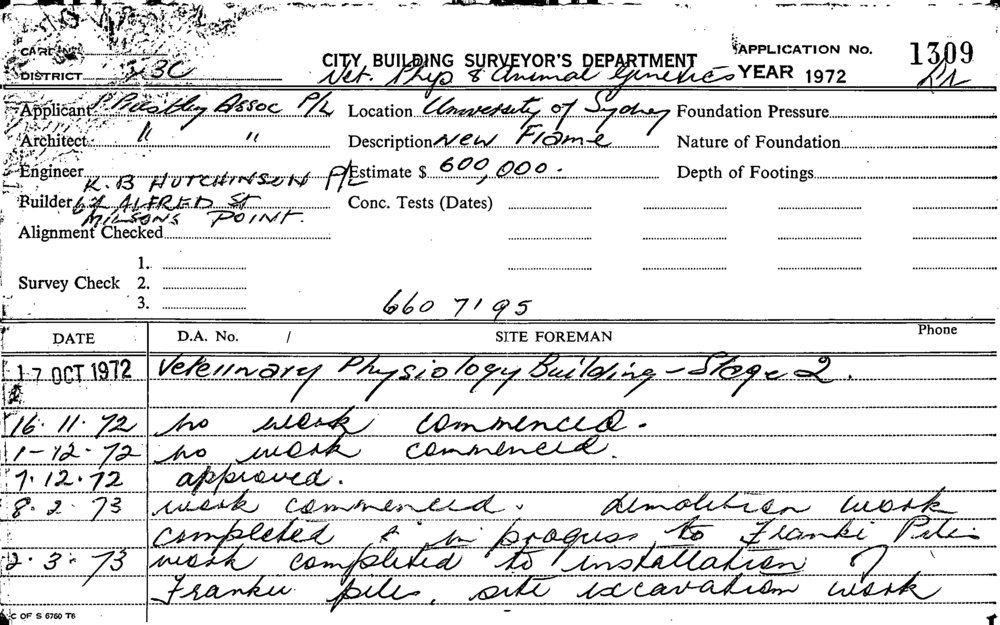 CARD No.
CITY BUILDING SURVEYOR'S DEPARTMENT
APPLICATION No. 1309
DISTRICT 23C
Vet. Phys & Animal Genetics
YEAR 1972
Applicant Assoc P/L
Location University of Sydney
Foundation Pressure
Architect " "
Description New Frame
Nature of Foundation
Engineer
Estimate $ 600,000.
Depth of Footings
K.B HUTCHINSON P/L
Builder 64 ALFRED ST
Conc. Tests (Dates)
MILSONS POINT.
Alignment Checked
1.
Survey Check 2.
3.
660 7195
DATE
D.A. No. /
SITE FOREMAN
Phone
17 OCT 1972 Veterinary Physiology Building - Stage 2.
16. 11. 72 no work commenced.
1-12-72 no work commenced.
7.12.72 approved.
8. 2. 73 work commenced. demolition work
completed & in progress to Franki Piles
2. 3. 73 work completed to installation of
Franki piles, site excavation work
C OF S 6760 T6